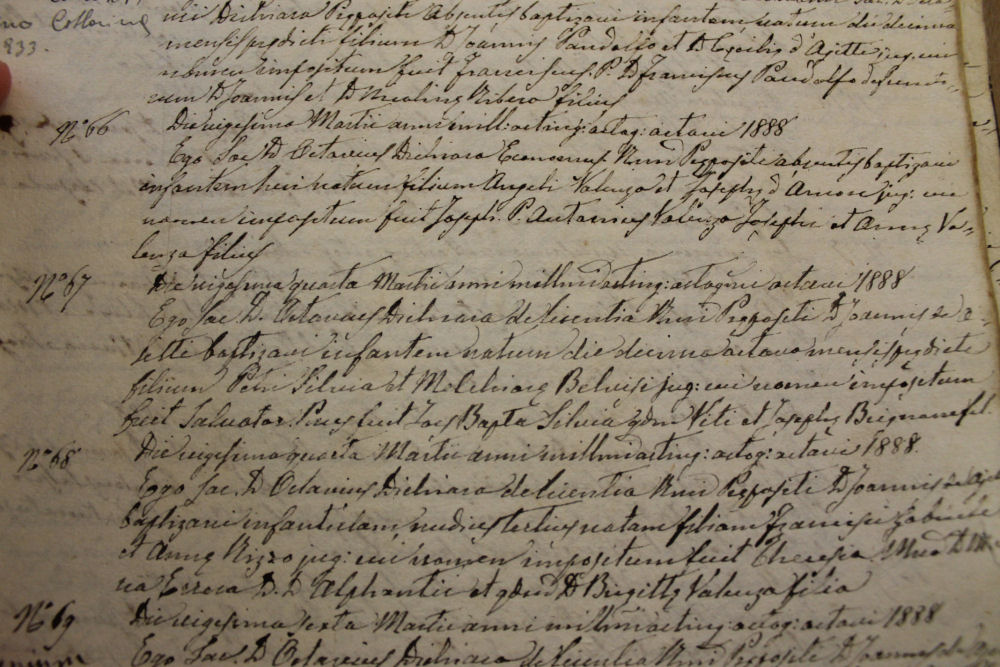 833.
nii Dichiara Prępositi Absentis baptizavi infantem natum die decima
mensis prędicti filium D. Joannis Pandolfo et D. Cęcilię d'Ajetti jug: cui
nomen impositum fuit Franciscus. P. D. Franciscus Pandolfo
D. Joannis et D. Ribera filius
N.o 66
Die vigesima Martii anni mill: octing: octog: octavi 1888
Ego Sac. D. Octavius Dichiara Economus Rmi Prępositi absentis baptizavi
infantem heri natum filium Angeli Valenza et Josephę d'Ancona jug: cui
nomen impositum fuit Joseph. P. Antonius Valenza Josephi et Annę Va-
lenza filius
N.o 67
Die vigesima quarta Martii anni millmi octing: octogmi octavi 1888
Ego Sac. D. Octavius Dichiara de licentia Rmi Prępositi D. Joannis de A-
jetti baptizavi infantem natum die decima octavo mensis prędicti
filium Petri Silvia et Melchiorę Belvisi jug: cui nomen impositum
fuit Salvator. Pnus fuit Jos Bapta Silvia qdm Viti et Josephę Brignone fil.
N.o 68
Die vigesima quarta Martii anni millmi octing: octog: octavi 1888.
Eggo Sac. D. Octavius Dichiara de licentia Rmi Prępositi D. Joannis de Ajet
baptizavi infantulam nudius tertius natam filiam Francisci
et Annę Rizzo jug: cui nomen impositum fuit Theresia. Mna D. Ma-
ria Errera D. D. Alphantii et qdm D. Brigittę Valenza filia
N.o 69
Die vigesima sexta Martii anni millmi octing: octog: octavi 1888
Ego Sac. D. Octavius Dichiara de licentia Rmi Prępositi D. Joannis de Aje